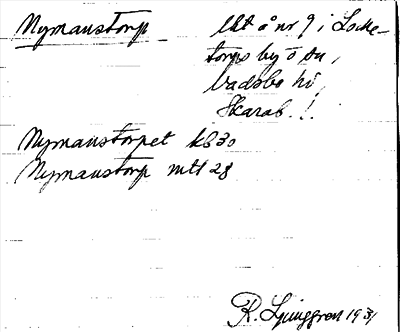 Nymanstorp
lht å nr 9 i Locke-
torps by ö sn,
Vadsbo hd,
Skarab. l.
Nymanstorpet kb 30
Nymanstorp mtl 28
R. Ljunggren 1931